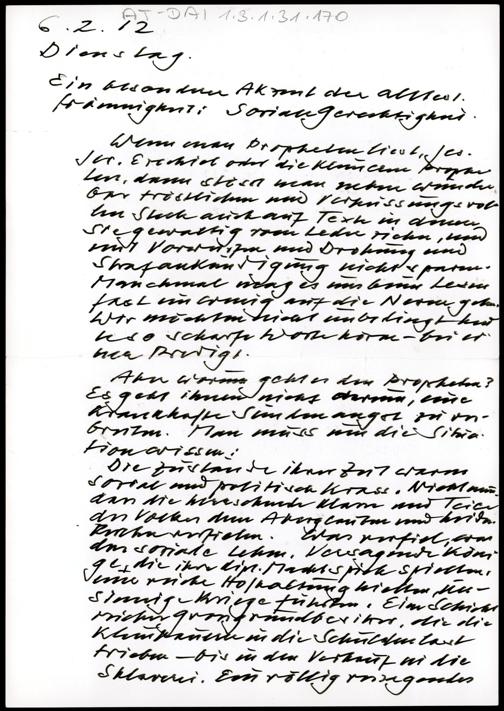 AT-DAI 1.3.1.31.170
6.2.12
Dienstag.
Ein besonderer Akzent der alttest.
Frömmigkeit: Soziale Gerechtigkeit.
Wenn man Propheten liest, Jes.
Jer. Ezechiel oder die kleineren Prophe
ten, dann stösst man neben wunder
bar tröstlichen und Verheissungsvol
len Stück auch auf Texte in denen
sie gewaltig vom Leder ziehn, und
mit Vorwürfen und Drohung und
Strafankündigung nicht sparen.
Manchmal mag es uns beim Lesen
fast ein wenig auf die Nerven gehn.
Wir möchten nicht unbedingt heu
te so scharfe Worte hören – bei ei
ner Predigt.
Aber worum geht es den Propheten?
Es geht ihnen nicht darum, eine
krankhafte Sündenangst zu ver-
breiten. Man muss um die Situa
tion wissen:
Die Zustände ihrer Zeit waren
sozial und politisch krass. Nicht nur
dass die herrschende Klasse und Teile
des Volkes dem Aberglauben und heidn.
verfielen. Was verfiel, war
das soziale Leben. Versagende Köni
ge, die ihre dipl. Machtspiele spielten,
eine reiche Hofhaltung hielten, un-
sinnige Kriege führten. Eine Schicht
reicher Grossgrundbesitzer, die die
Kleinbauern in die Schuldenlast
trieben – bis in den Verkauf in die
Sklaverei. Ein völlig versagendes